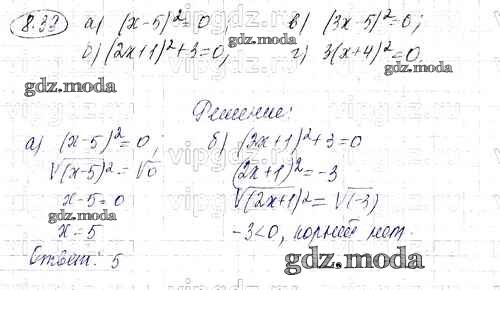 8.33 а) (x-5)²=0 в) (3x-5)²=0;
б) (2x+1)²+3=0, г) 3(x+4)²=0,
gdz.moda
gdz.moda
Решение:
а) (x-5)²=0; б) (2x+1)²+3=0
√(x-5)²=√0 (2x+1)²=-3
x-5=0 √(2x+1)²=√(-3)
gdz.moda
x=5 -3<0, корней нет.
Ответ: 5
gdz.moda